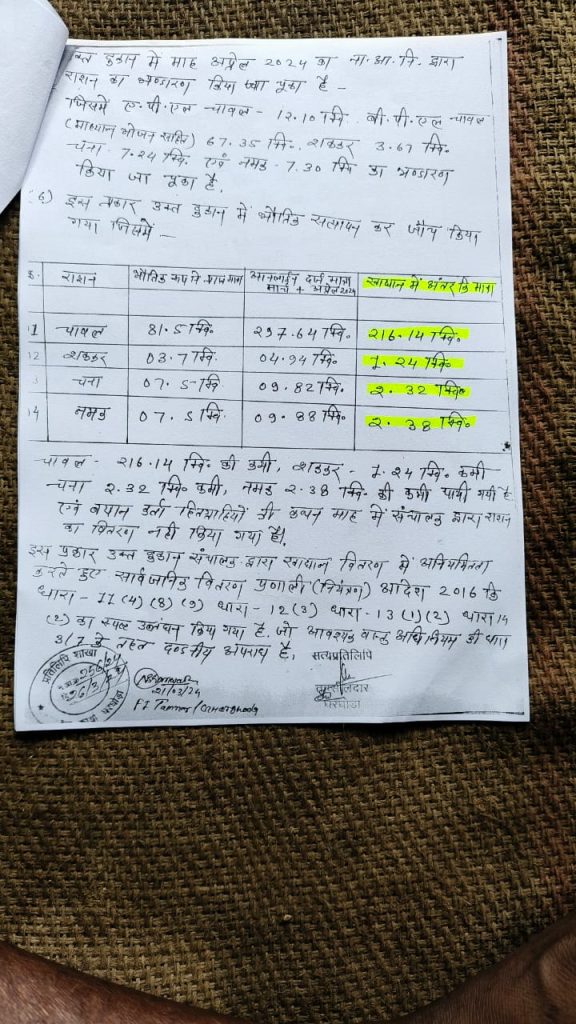 उक्त दुकान में माह अप्रेल 2024 का ना.आ.नि. द्वारा
राशन का भण्डारण किया जा चूका है -
जिसमें ए.पी.एल चावल - 12.10 क्विं. बी.पी.एल चावल
(माध्यान भोजन सहित) 67.35 क्विं., शक्कर 3.67 क्विं.
चना - 7.24 क्विं. एवं नमक - 7.30 क्विं का भण्डारण
किया जा चूका है.
6) इस प्रकार उक्त दुकान में भौतिक सत्यापन कर जाँच किया
गया जिसमें -
क्र. राशन भौतिक मात्रा आनलाईन दर्ज मात्रा मार्च + अप्रेल 2024 खाद्यान में अंतर कि मात्रा
11 चावल 81.5 क्विं. 297.64 क्विं. 216.14 क्विं.
12 शक्कर 03.7 क्विं 04.94 क्विं. 1.24 क्विं.
3 चना 07.5 क्विं 09.82 क्विं. 2.32 क्विं.
14 नमक 07.5 क्विं. 09.88 क्विं. 2.38 क्विं.
चावल - 216.14 क्विं. की कमी, शक्कर - 1.24 क्विं. कमी
चना 2.32 क्विं. कमी, नमक 2.38 क्विं. की कमी पायी गयी है.
एवं बयान उक्त हितग्राहियों की कथन माह में संचालक द्वारा राशन
का वितरण नही किया गया है।
इस प्रकार उक्त दुकान संचालक द्वारा खाद्यान वितरण में अनियमितता
करते हुए सार्वजानिक वितरण प्रणाली (नियंत्रण) आदेश 2016 कि
धारा - 11 (4) (8) (9) धारा - 12 (3) धारा - 13 (1) (2) धारा 14
(2) का स्पष्ट उल्लंघन किया गया है. जो आवश्यक वस्तु अधिनियम की धारा
3/7 के तहत दण्डनीय अपराध है.
सत्यप्रतिलिपि
प्रतिलिपि शाखा
21/03/24
FI Tamnar/Gharghoda
तहसीलदार
घरघोडा